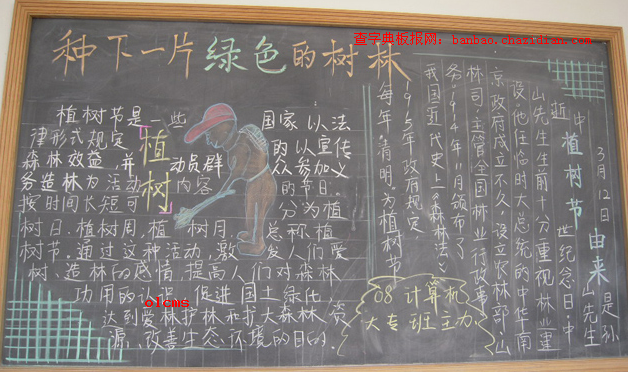 查字典板报网：banbao.chazidian.com
种下一片绿色的树林
植树节是一些国家以法
律形式规定的以宣传
森林效益，并动员群众参加义
务造林为活动内容的节日。
按时间长短可分为植
树日、植树周、植树月。总称植
树节。通过这种活动，激发人们爱
树、造林的感情，提高人们对森林
功用的认识，促进国土绿化
达到爱林护林和扩大森林资
源、改善生态环境的目的。
植树
olcms
中植树节由来
3月12日是孙
中山先生
逝世纪念日。
山先生生前十分重视林业建
设。他任临时大总统的中华南
京政府成立不久，设立农林部，山
林司，主管全国林业行政事
务。1914年11月颁布了
我国近代史上《森林法》
1915年政府规定
每年"清明"为植树节
08计算机
大专班主办